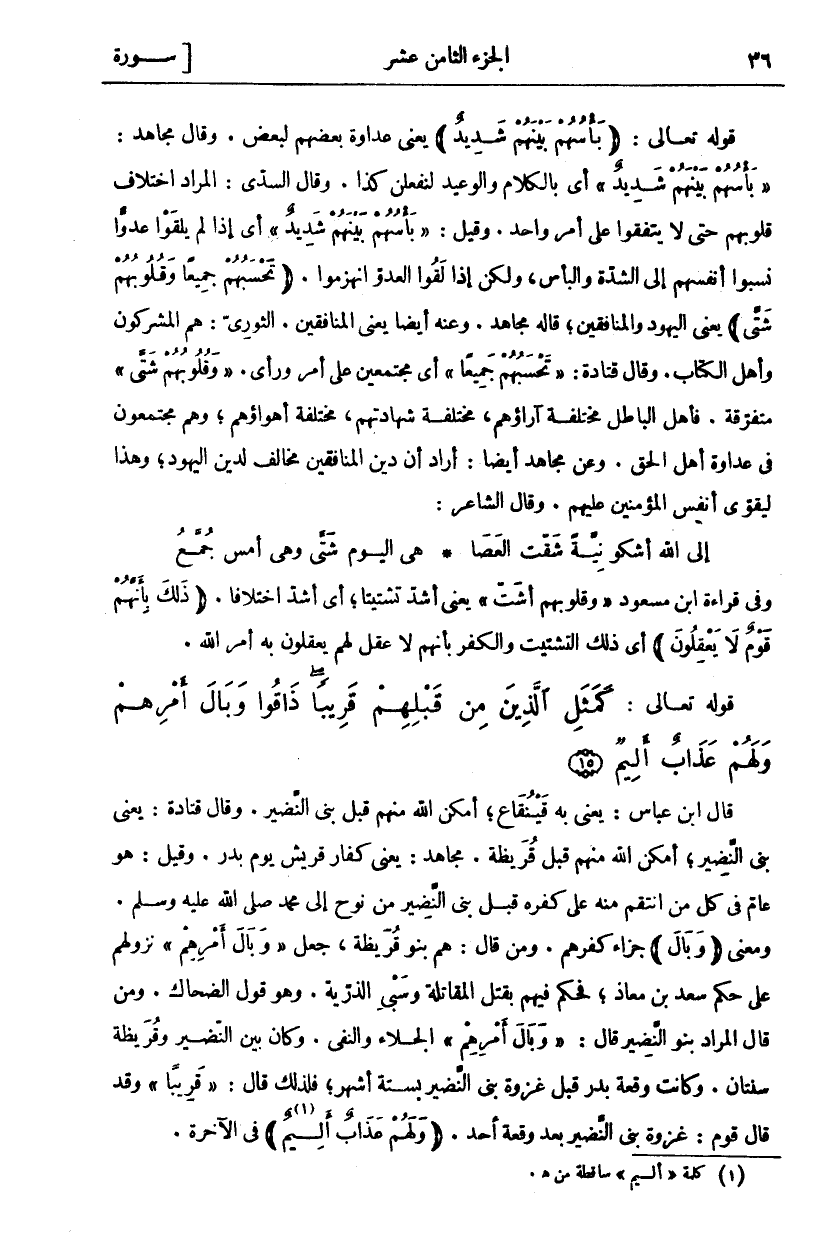 ٣٦ الجزء الثامن عشر [ ســـورة
قوله تعـالى : ﴿ بَأْسُهُمْ بَيْنَهُمْ شَـدِيدٌ ﴾ يعنى عداوة بعضهم لبعض . وقال مجاهد :
« بَأْسُهُمْ بَيْنَهُمْ شَـدِيدٌ » أى بالكلام والوعيد لنفعلن كذا . وقال السدّى : المراد اختلاف
قلوبهم حتى لا يتفقوا على أمر واحد . وقيل : « بَأْسُهُمْ بَيْنَهُمْ شَدِيدٌ » أى إذا لم يلقَوْا عدوًّا
نسبوا أنفسهم إلى الشدّة والبأس، ولكن إذا لَقُوا العدوّ انهزموا . ﴿ تَحْسَبُهُمْ جميعًا وَقُلُوبُهُمْ
شَتَّى ﴾ يعنى اليهود والمنافقين؛ قاله مجاهد . وعنه أيضا يعنى المنافقين . الثورىّ : هم المشركون
وأهل الكتاب. وقال قتادة: « تَحْسَبُهُمْ جَمِيعًا » أى مجتمعين على أمر ورأى. « وَقُلُوبُهُمْ شَتَّى »
متفرّقة . فأهل الباطل مختلفـة آراؤهم، مختلفـة شهادتهم، مختلفة أهواؤهم ؛ وهم مجتمعون
فى عداوة أهل الحق . وعن مجاهد أيضا : أراد أن دين المنافقين مخالف لدين اليهود؛ وهذا
ليقوى أنفس المؤمنين عليهم . وقال الشاعر :
إلى الله أشكو نِيَّةً شَقّت العَصَا * هى اليـوم شَتَّى وهى أمس جُمَّـعُ
وفى قراءة ابن مسعود « وقلوبهم أشَتّ » يعنى أشدّ تشتيتا؛ أى أشدّ اختلافا . ﴿ ذَلكَ بِأَنَّهُمْ
قَوْمٌ لَا يَعْقِلُونَ ﴾ أى ذلك التشتيت والكفر بأنهم لا عقل لهم يعقلون به أمر الله .
قوله تعـالى : كَمَثَلِ ٱلَّذِينَ مِن قَبْلِهِـمْ قَرِيبًا ۖ ذَاقُوا وَبَالَ أَمْرِهِـمْ
وَلَهُمْ عَذَابٌ أَلِيمٌ ١٥
قال ابن عباس : يعنى به قَيْنُقَاع؛ أمكن الله منهم قبل بنى النَّضير . وقال قتادة : يعنى
بنى النَّضِير؛ أمكن الله منهم قبل قُرَيظة . مجاهد: يعنى كفار قريش يوم بدر . وقيل : هو
عامّ فى كل من انتقم منه على كفره قبـل بنى النَّضِير من نوح إلى محمد صلى الله عليه وسلـم .
ومعنى ﴿ وَبَالَ ﴾ جزاء كفرهم . ومن قال : هم بنو قُرَيظة ، جعل « وَبَالَ أَمْرِهِمْ » نزولهم
على حكم سعد بن معاذ ؛ فحكم فيهم بقتل المقاتلة وسَبْىِ الذرّية . وهو قول الضحاك . ومن
قال المراد بنو النَّضِير قال : « وَبَالَ أَمْرِهِمْ » الجـلاء والنفى . وكان بين النَّضـير وقُرَيظة
سنتان . وكانت وقعة بدر قبل غزوة بنى النَّضير بستة أشهر؛ فلذلك قال : « قَرِيبًا » وقد
قال قوم : غزوة بنى النَّضير بعد وقعة أحد . ﴿ وَلَهُمْ عَذَابٌ أَلِـيمٌ ﴾ (١) فى الآخرة .
(١) كلمة « أليم » ساقطة من ه .